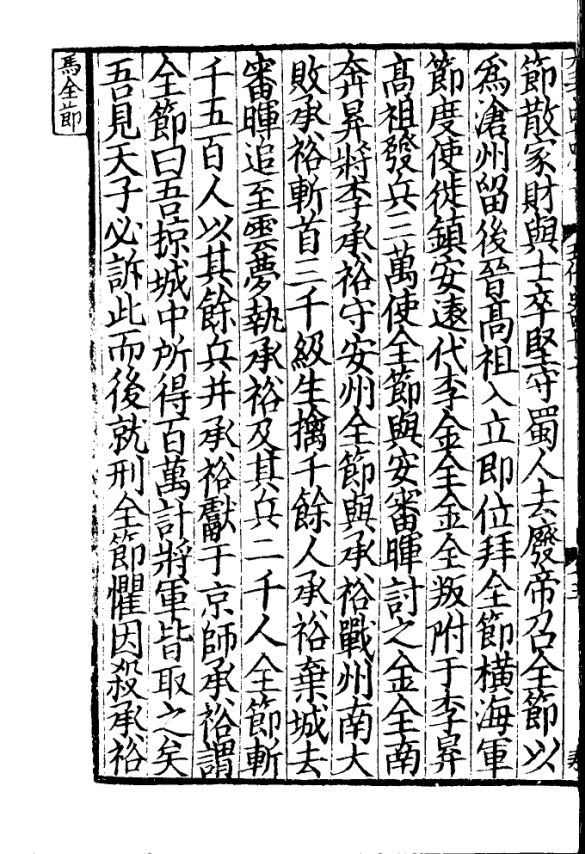 節散家財與士卒堅守蜀人去廢帝召全節以
爲滄州留後晉髙祖入立即位拜全節橫海軍
節度使徙鎮安遠代李金全金全叛附于李昇
髙祖發兵三萬使全節與安審暉討之金全南
奔昇將李承裕守安州全節與承裕戰州南大
敗承裕斬首三千級生擒千餘人承裕棄城去
審暉追至雲夢執承裕及其兵二千人全節斬
千五百人以其餘兵并承裕獻于京師承裕謂
全節曰吾掠城中所得百萬計將軍皆取之矣
吾見天子必訴此而後就刑全節懼因殺承裕
馬全節